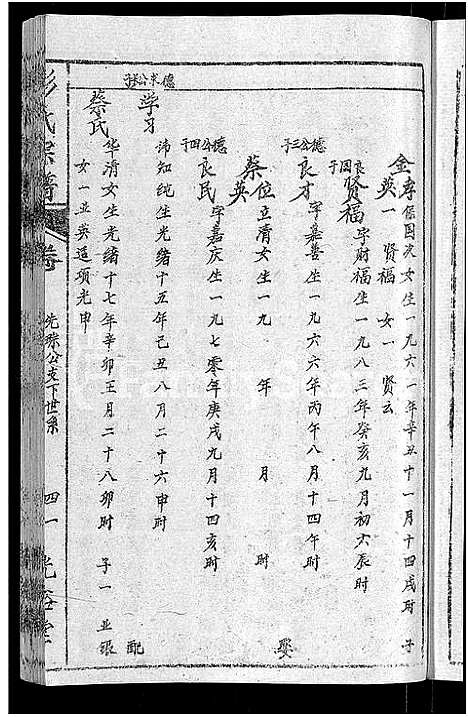 金英 李保国次女生一九六一年辛丑十一月十四戌时 子
一 贤福 女一 贤云
良国子 贤福 字财福生一九八三年癸亥九月初六辰时
德公三子 良才 字嘉善生一九六六年丙午八月十四午时 娶
蔡英 位立清女生一九 年 月 时
德公四子 良民 字嘉庆生一九七零年庚戌九月十四亥时
德 公 子
学习 沛知 生光绪十五年己丑八月二十六申时 配
蔡氏 华清女生光绪十七年辛卯 月二十八卯时 子一 亚
女一亚英适项光申
彭氏宗谱 卷 先 公支下世系 四一 光 堂